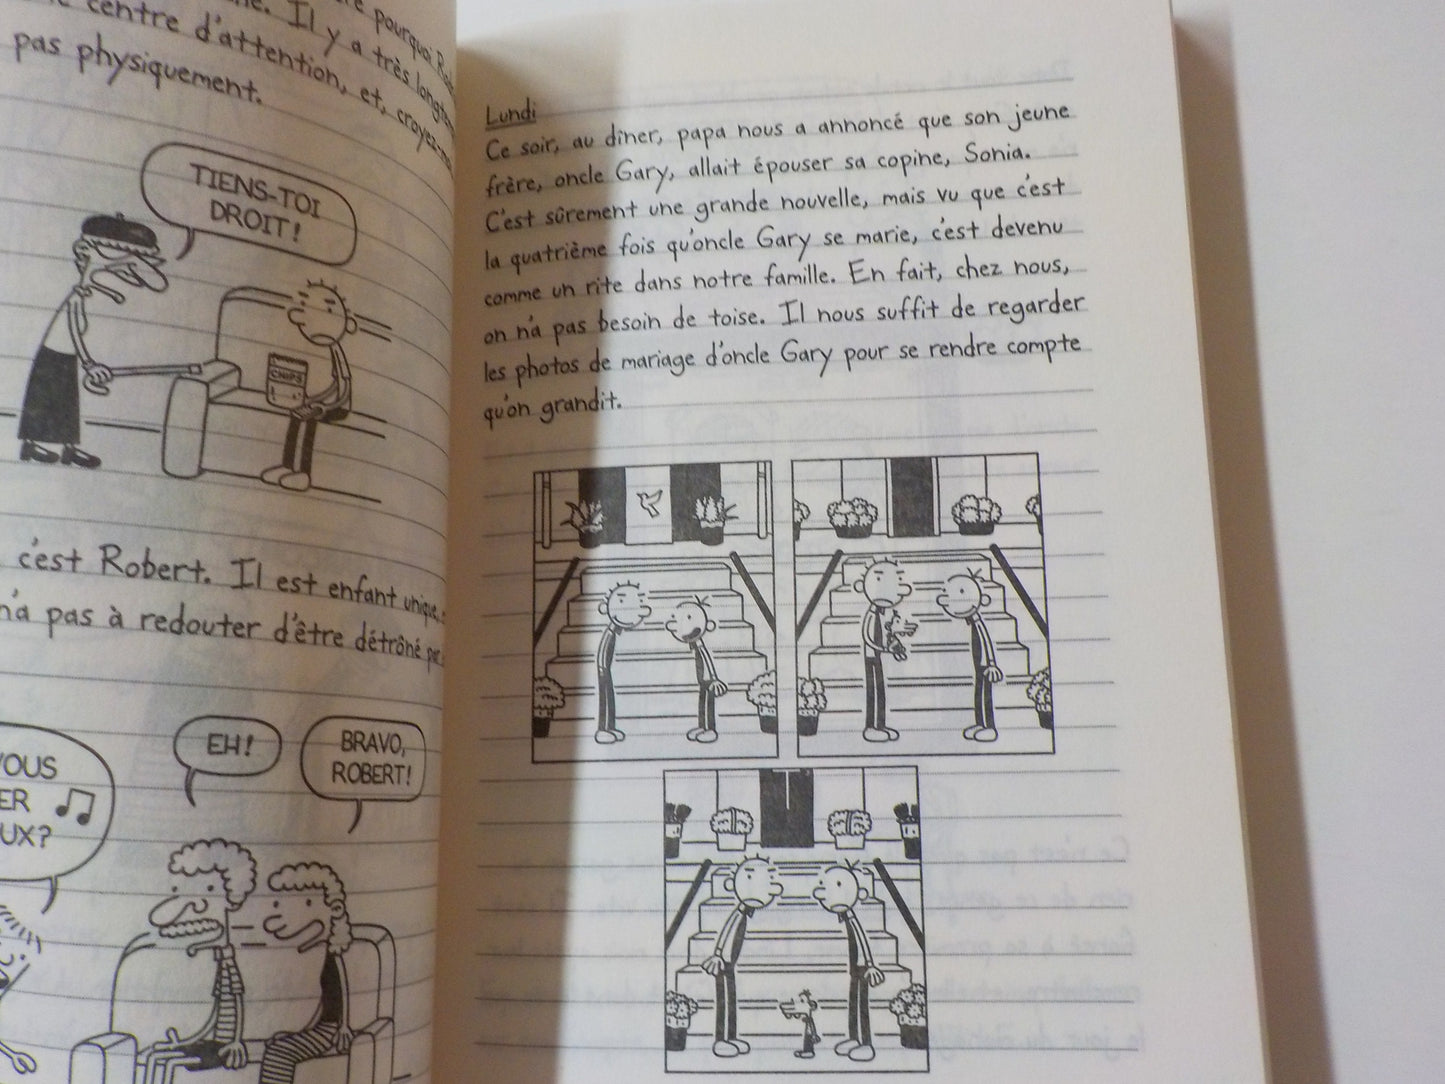 pourquoi
centre d'attention, et, croyez-
Il y a très
pas physiquement.
TIENS-TOI
DROIT!
CHIPS
c'est Robert. Il est enfant unique,
n'a pas à redouter d'être détrôné
VOUS
UX?
EH!
BRAVO,
ROBERT!
Lundi
Ce soir, au dîner, papa nous a annoncé que son jeune
frère, oncle Gary, allait épouser sa copine, Sonia.
C'est sûrement une grande nouvelle, mais vu que c'est
la quatrième fois qu'oncle Gary se marie, c'est devenu
comme un rite dans notre famille. En fait, chez nous,
on n'a pas besoin de toise. Il nous suffit de regarder
les photos de mariage d'oncle Gary pour se rendre compte
qu'on grandit.